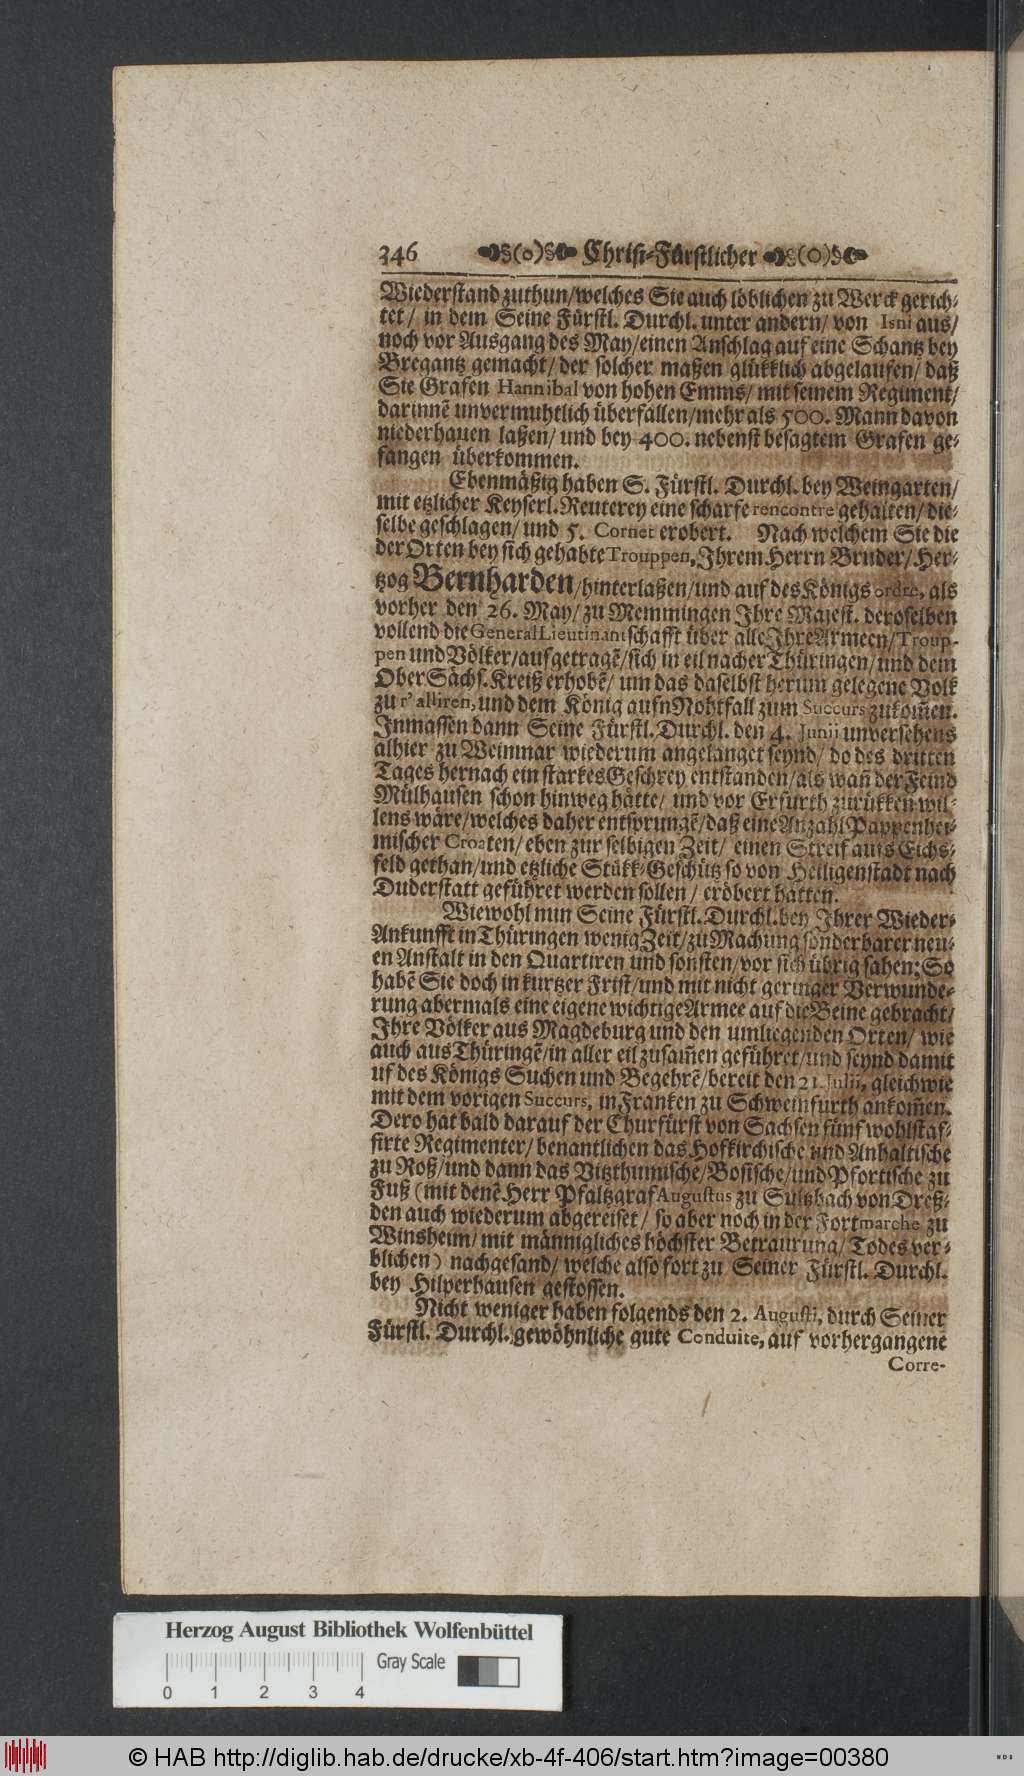 346 ⁕§(o)§⁕ Christ-Fürstlicher ⁕§(O)§⁕
Wiederstand zuthun/welches Sie auch löblichen zu Werck gerich-
tet/ in dem Seine Fürstl. Durchl. unter andern/ von Isni aus/
noch vor Ausgang des May/einen Anschlag auf eine Schantz bey
Bregantz gemacht/ der solcher maßen glükklich abgelaufen/ daß
Sie Grafen Hannibal von hohen Emms/ mit seinem Regiment/
darinnē unvermuhtlich überfallen/mehr als 500. Mann davon
niederhauen laßen/ und bey 400. nebenst besagtem Grafen ge-
fangen überkommen.
Ebenmäßig haben S. Fürstl. Durchl. bey Weingarten/
mit etzlicher Keyserl. Reuterey eine scharfe rencontre gehalten/ die-
selbe geschlagen/ und 5. Cornet erobert. Nach welchem Sie die
der Orten bey sich gehabte Trouppen, Ihrem Herrn Bruder/ Her-
tzog Bernharden/hinterlaßen/und auf des Königs ordre, als
vorher den 26. May/ zu Memmingen Ihre Majest. deroselben
vollend die General Lieutinantschafft über alle Ihre Armeen/Troup-
pen und Völker/aufgetragē/sich in eil nacher Thüringen/und dem
Ober Sächs. Kreiß erhobē/ um das daselbst herum gelegene Volk
zu r'alliren, und dem König aufn Nohtfall zum Succurs zukom̄en.
Inmassen dann Seine Fürstl. Durchl. den 4. Junii unversehens
alhier zu Weinmar wiederum angelanget seynd/ do des dritten
Tages hernach ein starkes Geschrey entstanden/als wan̄ der Feind
Mülhausen schon hinweg hätte/ und vor Erfurth zurükken wil-
lens wäre/welches daher entsprungē/daß eine Anzahl Pappenhei-
mischer Croaten/ eben zur selbigen Zeit/ einen Streif aufs Eichs-
feld gethan/und etzliche Stükk-Geschütz so von Heiligenstadt nach
Duderstatt geführet werden sollen/ eröbert hätten.
Wiewohl nun Seine Fürstl. Durchl. bey Ihrer Wieder-
Ankunfft in Thüringen wenig Zeit/zu Machung sonderbarer neu-
en Anstalt in den Quartiren und sonsten/vor sich übrig sahen; So
habē Sie doch in kurtzer Frist/und mit nicht geringer Verwunde-
rung abermals eine eigene wichtige Armee auf die Beine gebracht/
Ihre Völker aus Magdeburg und den umliegenden Orten/ wie
auch aus Thüringē/in aller eil zusam̄en geführet/und seynd damit
uf des Königs Suchen und Begehrē/bereit den 21. Julii, gleichwie
mit dem vorigen Succurs, in Franken zu Schweinfurth ankom̄en.
Dero hat bald darauf der Churfürst von Sachsen fünf wohlstaf-
firte Regimenter/ benantlichen das Hofkirchische und Anhaltische
zu Roß/und dann das Vitzthumische/Bosische/und Pfortische zu
Fuß (mit denē Herr Pfaltzgraf Augustus zu Sultzbach von Dreß-
den auch wiederum abgereiset/ so aber noch in der Fortmarche zu
Winsheim/ mit männigliches höchster Betraurung/ Todes ver-
blichen) nachgesand/ welche also fort zu Seiner Fürstl. Durchl.
bey Hilperhausen gestossen.
Nicht weniger haben folgends den 2. Augusti, durch Seiner
Fürstl. Durchl. gewöhnliche gute Conduite, auf vorhergangene
Corre-
Herzog August Bibliothek Wolfenbüttel
Gray Scale
0 1 2 3 4
© HAB http://diglib.hab.de/drucke/xb-4f-406/start.htm?image=00380